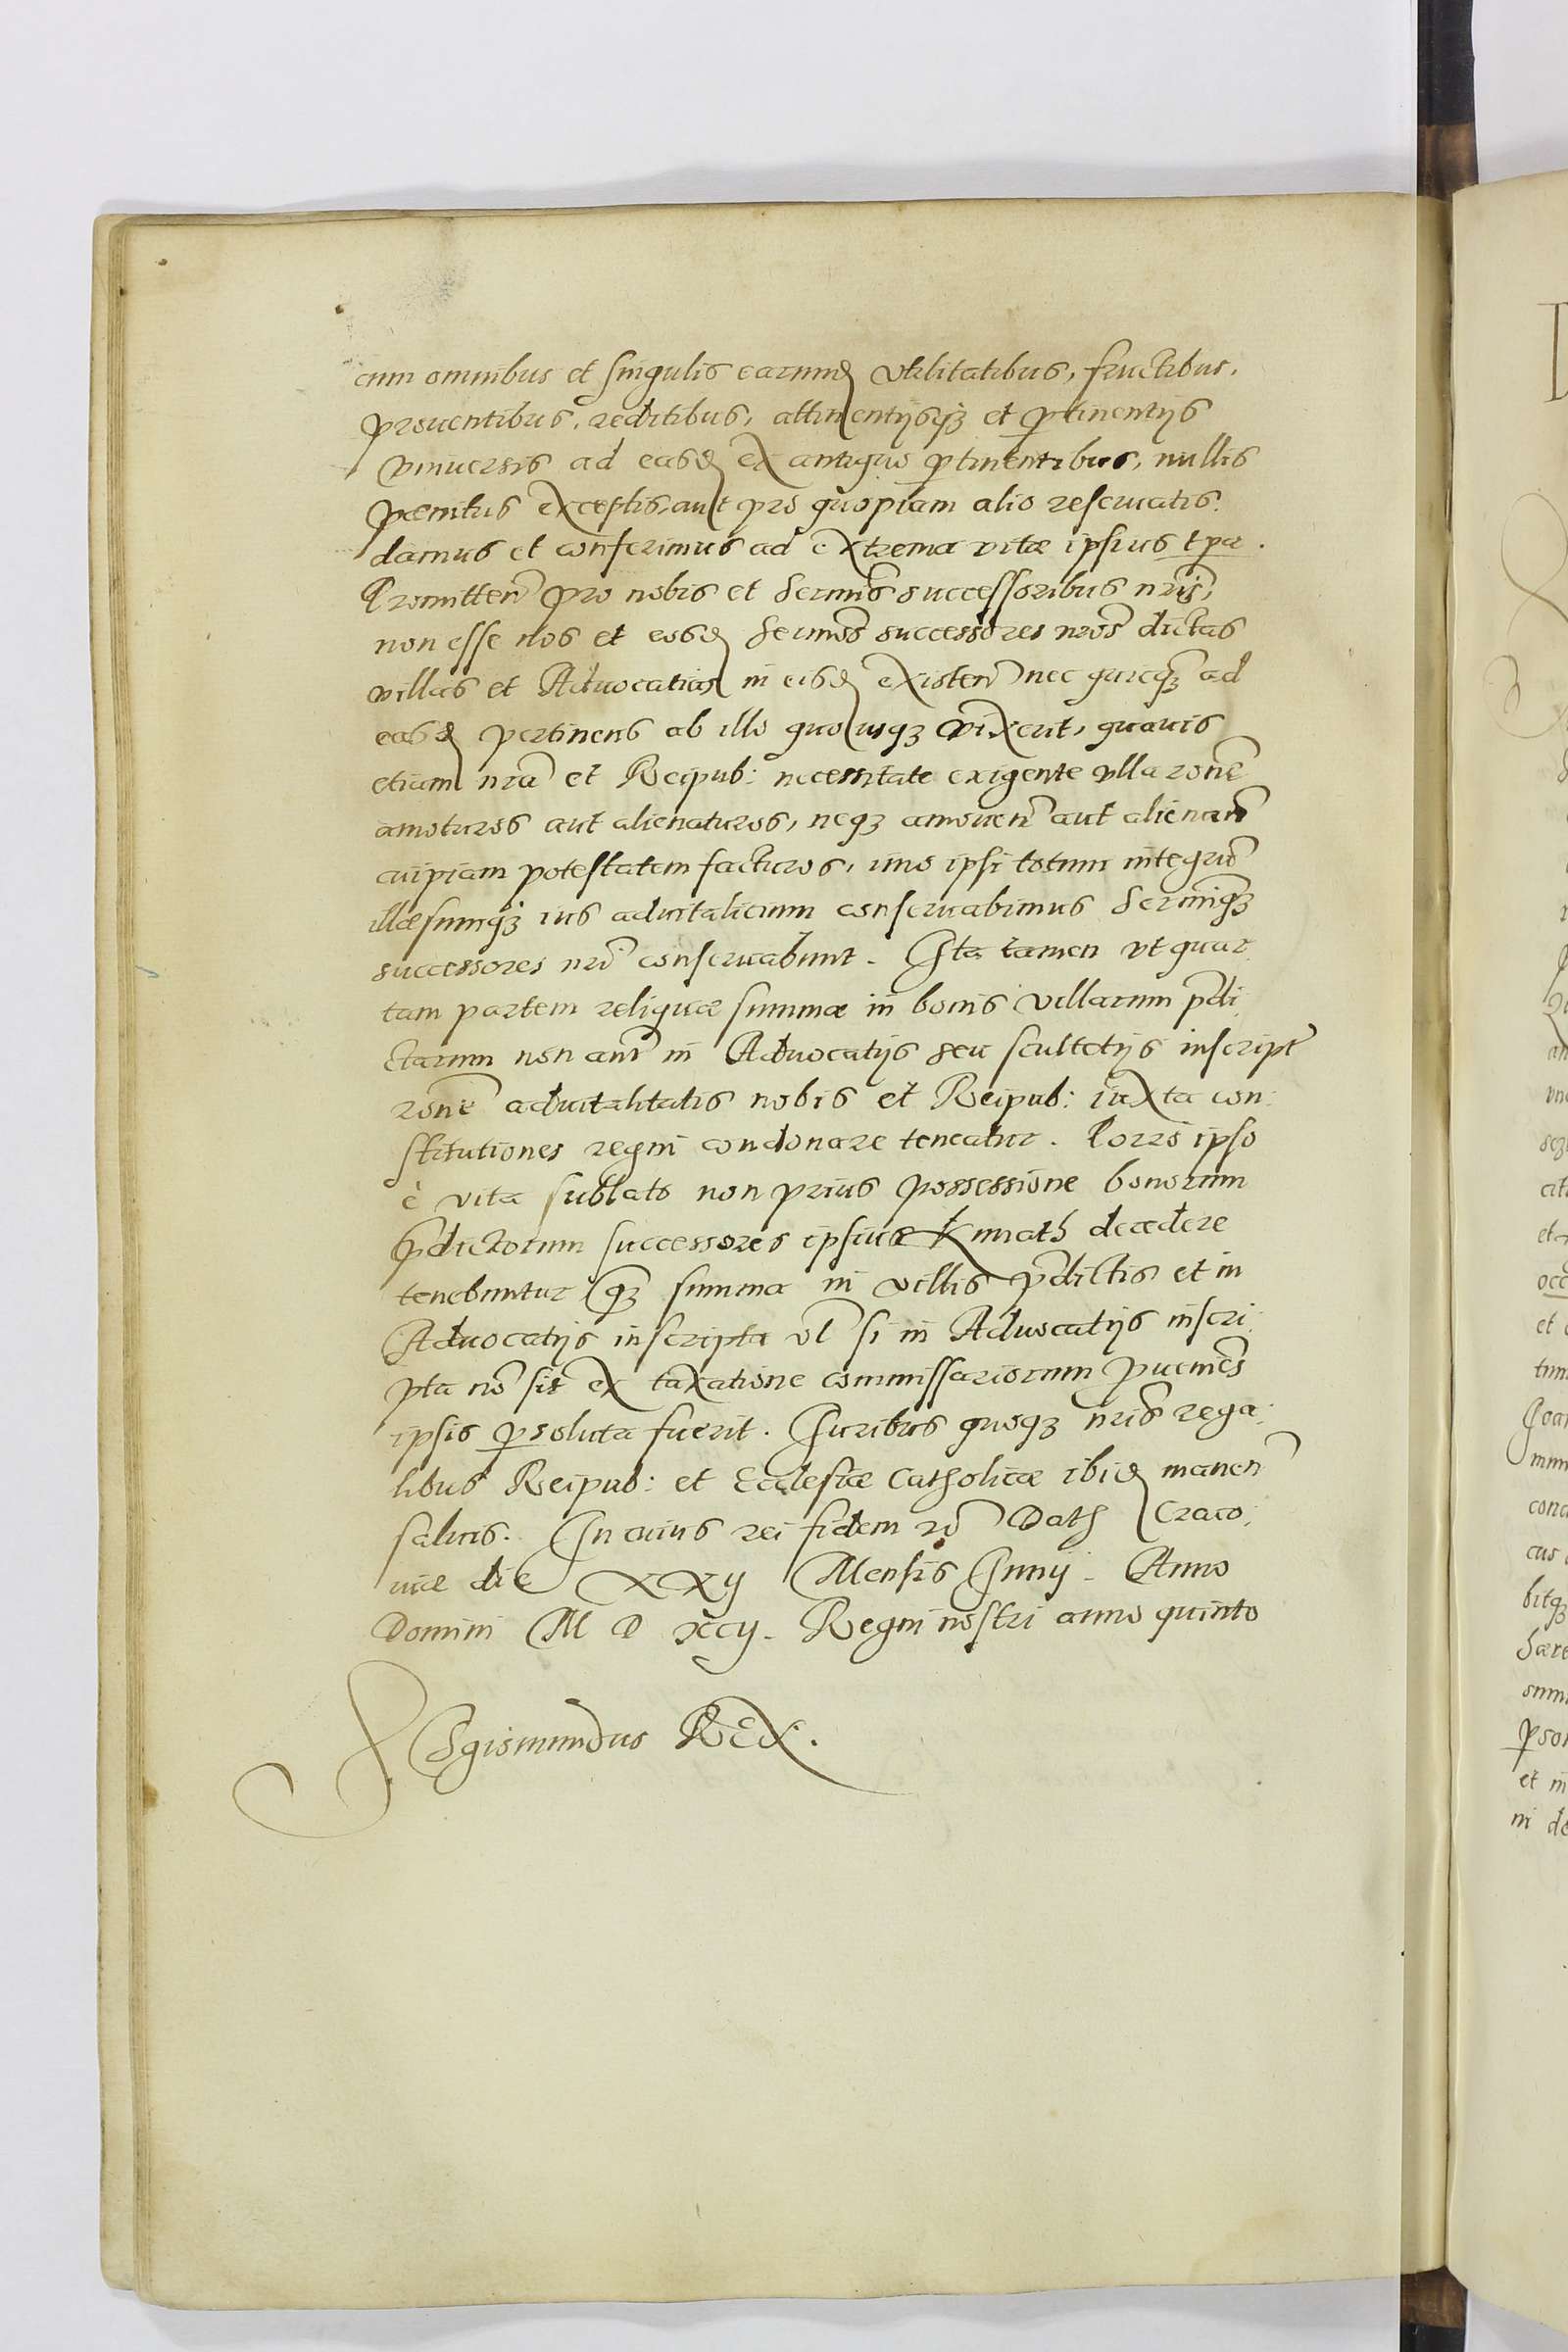 cum omnibus et singulis earund vtilitatibus, fructibus,
prouentibus, reditibus, attinentijsq3 et ptinentijs
vniuersis ad easd ex antiquo ptinentibus, nullis
pœnitus exceptis, aut pro quopiam alio reseruatis.
damus et conferimus ad extrema vitæ ipsius tpa.
Promitten pro nobis et Sermis successoribus nris,
non esse nos et eosd Sermos successores nros dictas
villas et Aduocatias in eisd existen nec quicq3 ad
easd pertinens ab illo quousq3 vixerit, quauis
etiam nra et Reipub: necessitate exigente vlla rone
amoturos aut alienaturos, neq3 amouen aut alienan
cuipiam potestatem facturos, imo ipsi totum integru
illæsumq3 ius aduitalicium conseruabimus Sermiq3
successores nri conseruabunt. Ita tamen vt quar
tam partem reliquæ summæ in bonis villarum pdi
ctarum non aut in Aduocatijs seu scultetijs inscript
rone aduitalitatis nobis et Reipub: iuxta con:
stitutiones regni condonare teneatur. Porro ipso
è vita sublato non prius possessione bonorum
pdictorum successores ipsius Kmath decedere
tenebuntur q3 summa in villis pdictis et in
Aduocatijs inscripta vl si in Aduocatijs inscri:
pta no sit ex taxatione commissariorum pueniens
ipsis psoluta fuerit. Iuribus quoq3 nris rega:
libus Reipub: et Ecclesiæ Catholicæ ibid manen
saluis. In cuius rei fidem Dath Craco:
uiæ die XXij Mensis Iunij. Anno
Domini M D xcij. Regni nostri anno quinto
Sigismundus REX.